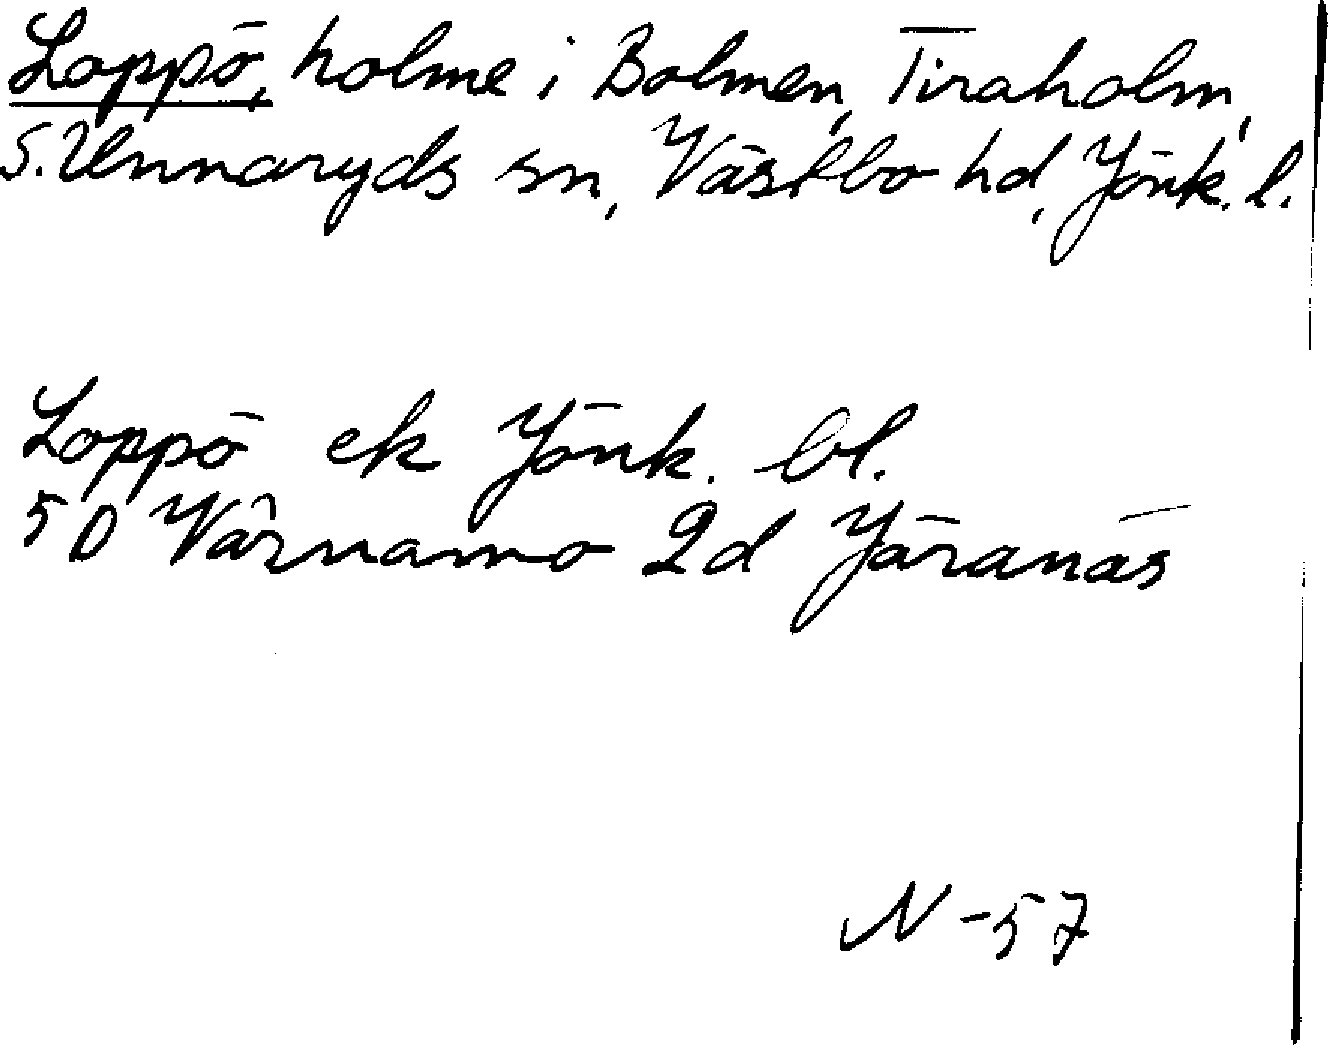 Loppö, holme i Bolmen, Tiraholm,
S. Unnaryds sn, Västbo hd, Jönk. l.
Loppö ek Jönk. bl.
5 D Värnamo 2d Järanäs
N-57